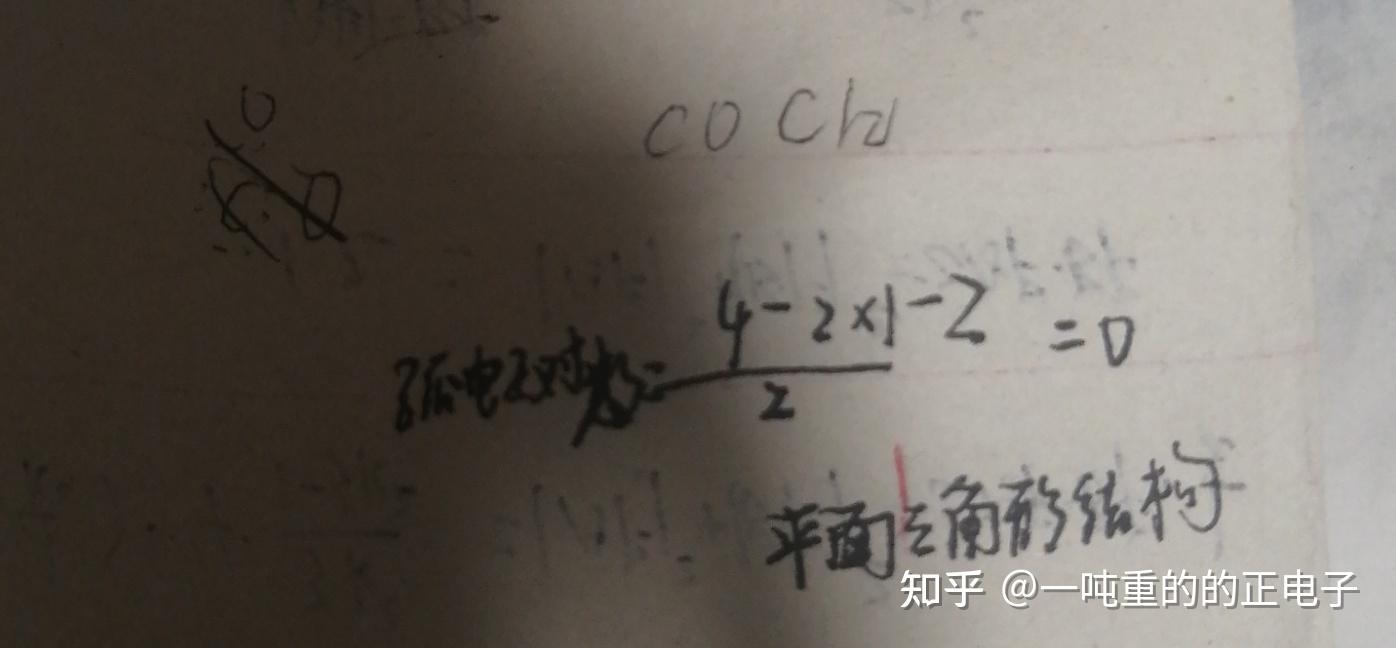 COCl2
孤电子对数=
4-2×1-2
2
=0
平面三角形结构
知乎 @一吨重的的正电子